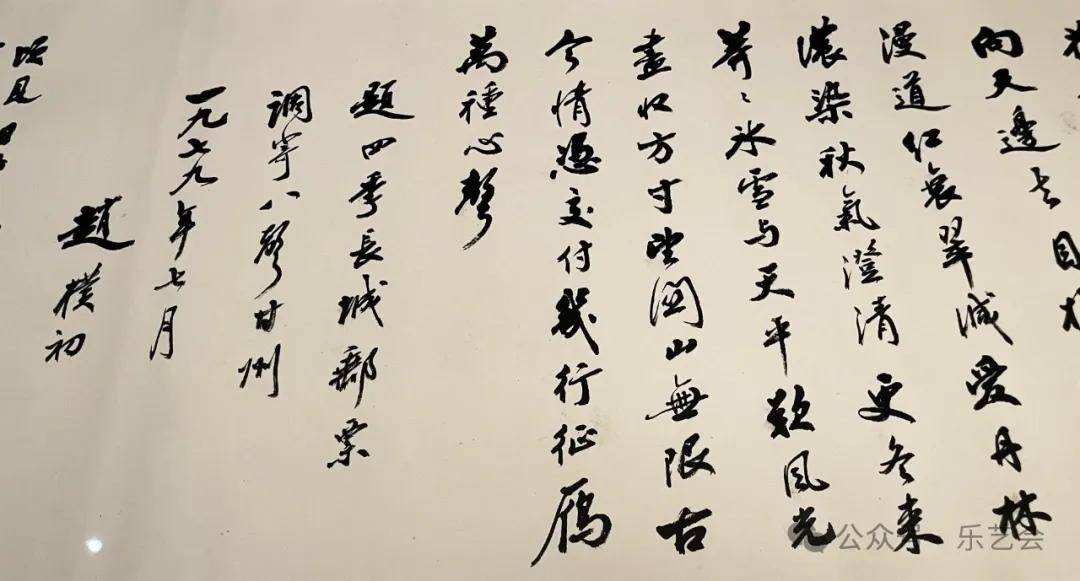 向天邊去目
漫道红衰翠減愛丹林
濃染秋氣澄清 更冬来
莽〻冰雪与天平 歎風光
盡收方寸望関山無限古
今情憑交付幾行征雁
萬種心聲
題四季長城郵票
調寄八聲甘州
一九七九年七月
趙樸初
公众号 乐艺会